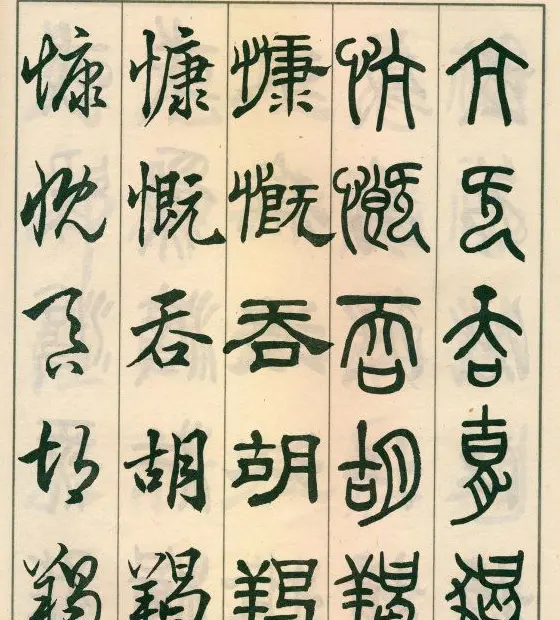 亢旡吞胡
忼慨吞胡羯
慷慨吞胡羯
慷慨吞胡羯
慷慨吞胡羯